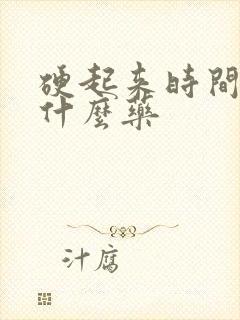 硬起来時間
什麼藥
汁腐